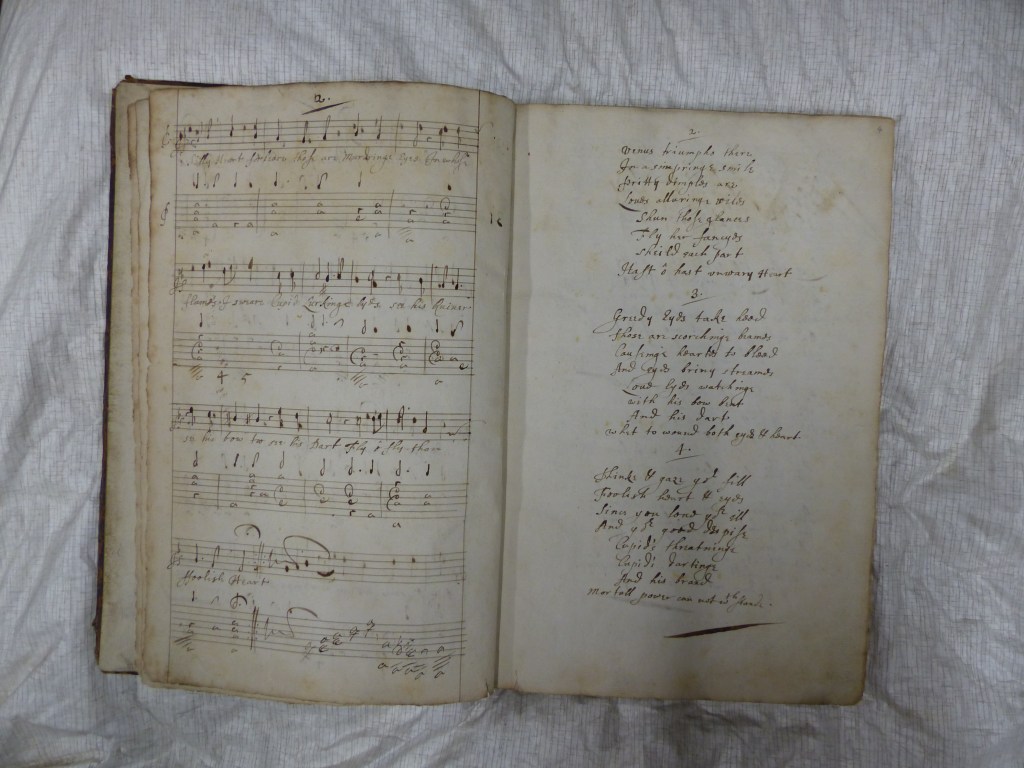 2.
Fly Heart believe those are Murdringe Eyes
flames yt swarm Cupid Lurkinge lyes see his Quiver
see his bow too see his Dart Fly o Fly thou
Foolish Heart
2.
Venus triumphs there
In a simpringe smile
Pritty dimples are
Loves alluringe wiles
Shun those glances
Fly her fancyes
shield each part
Hast o hast unwary Heart
3.
Greedy Eyes take heed
those are scorchinge beames
Causinge heartes to bleed
And Eyes briny streames
Loue lyes watchinge
with his bow bent
And his dart
to wound both eyes & heart.
4.
Thinke & gaze yor fill
Foolish heart & eyes
Since you loue yor ill
And yor good despise
Cupids threatninge
Cupids dartinge
And his brand
Mortall power can not wthstand.